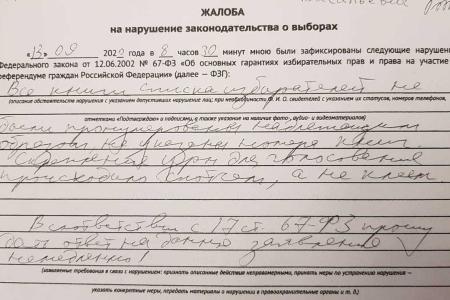 ЖАЛОБА
на нарушение законодательства о выборах
«13» 09 2020 года в 8 часов 30 минут мною были зафиксированы следующие нарушени
Федерального закона от 12.06.2002 № 67-ФЗ «Об основных гарантиях избирательных прав и права на участие
референдуме граждан Российской Федерации» (далее – ФЗГ):
Все книги списка избирателей не
(описание обстоятельств нарушения с указанием допустивших нарушение лиц; при необходимости Ф. И. О. свидетелей с указанием их статусов, номеров телефонов,
отметками «Подтверждаю» и подписями, а также указание на наличие фото-, аудио- и видеоматериалов)
были пронумерованы надлежащим
образом, не указаны номера книг.
Скрепление урн для голосования
происходило скотчем, а не клеем
В соответствии с 17 ст. 67-ФЗ прошу
дать ответ на данное заявление
немедленно!
(изложение требования в связи с нарушением: признать описанные действия неправомерными, принять меры по устранению нарушения –
указать конкретные меры, передать материалы о нарушении в правоохранительные органы и т. д.)